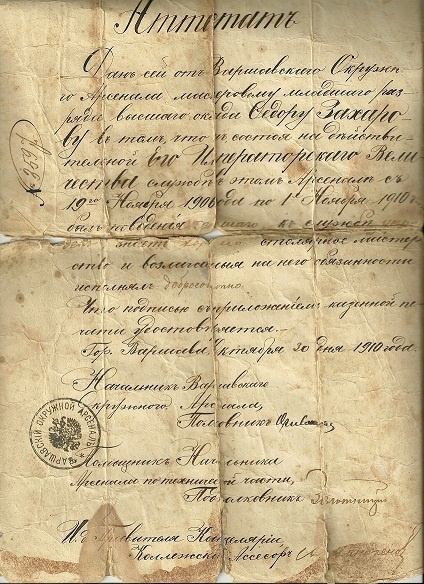 Аттестатъ
Данъ сей отъ Варшавскаго Окружн-
го Арсенала мастеровому младшаго раз-
ряда высшаго оклада Ѳедору Захаро-
ву въ томъ, что состоя на дѣйстви-
тельной Его Императорскаго Вели-
чества службѣ въ этомъ Арсеналѣ съ
19го Ноября 1906 года по 1е Ноября 1910
былъ поведенія къ службѣ
столярное мастер-
ство и возлагаемыя на него обязанности
исполнялъ добросовѣстно.
Что подписью съ приложеніемъ казенной пе-
чати удостовѣряется.—
Гор. Варшава, Октября 20 дня 1910 года.
Начальникъ Варшавскаго
Окружного Арсенала,
Полковникъ
ВАРШАВСКІЙ ОКРУЖНОЙ АРСЕНАЛЪ
Помощникъ Начальника
Арсенала по технической части,
Подполковникъ
И. д. Правителя Канцеляріи,
Коллежскій Асессоръ
№ 3697